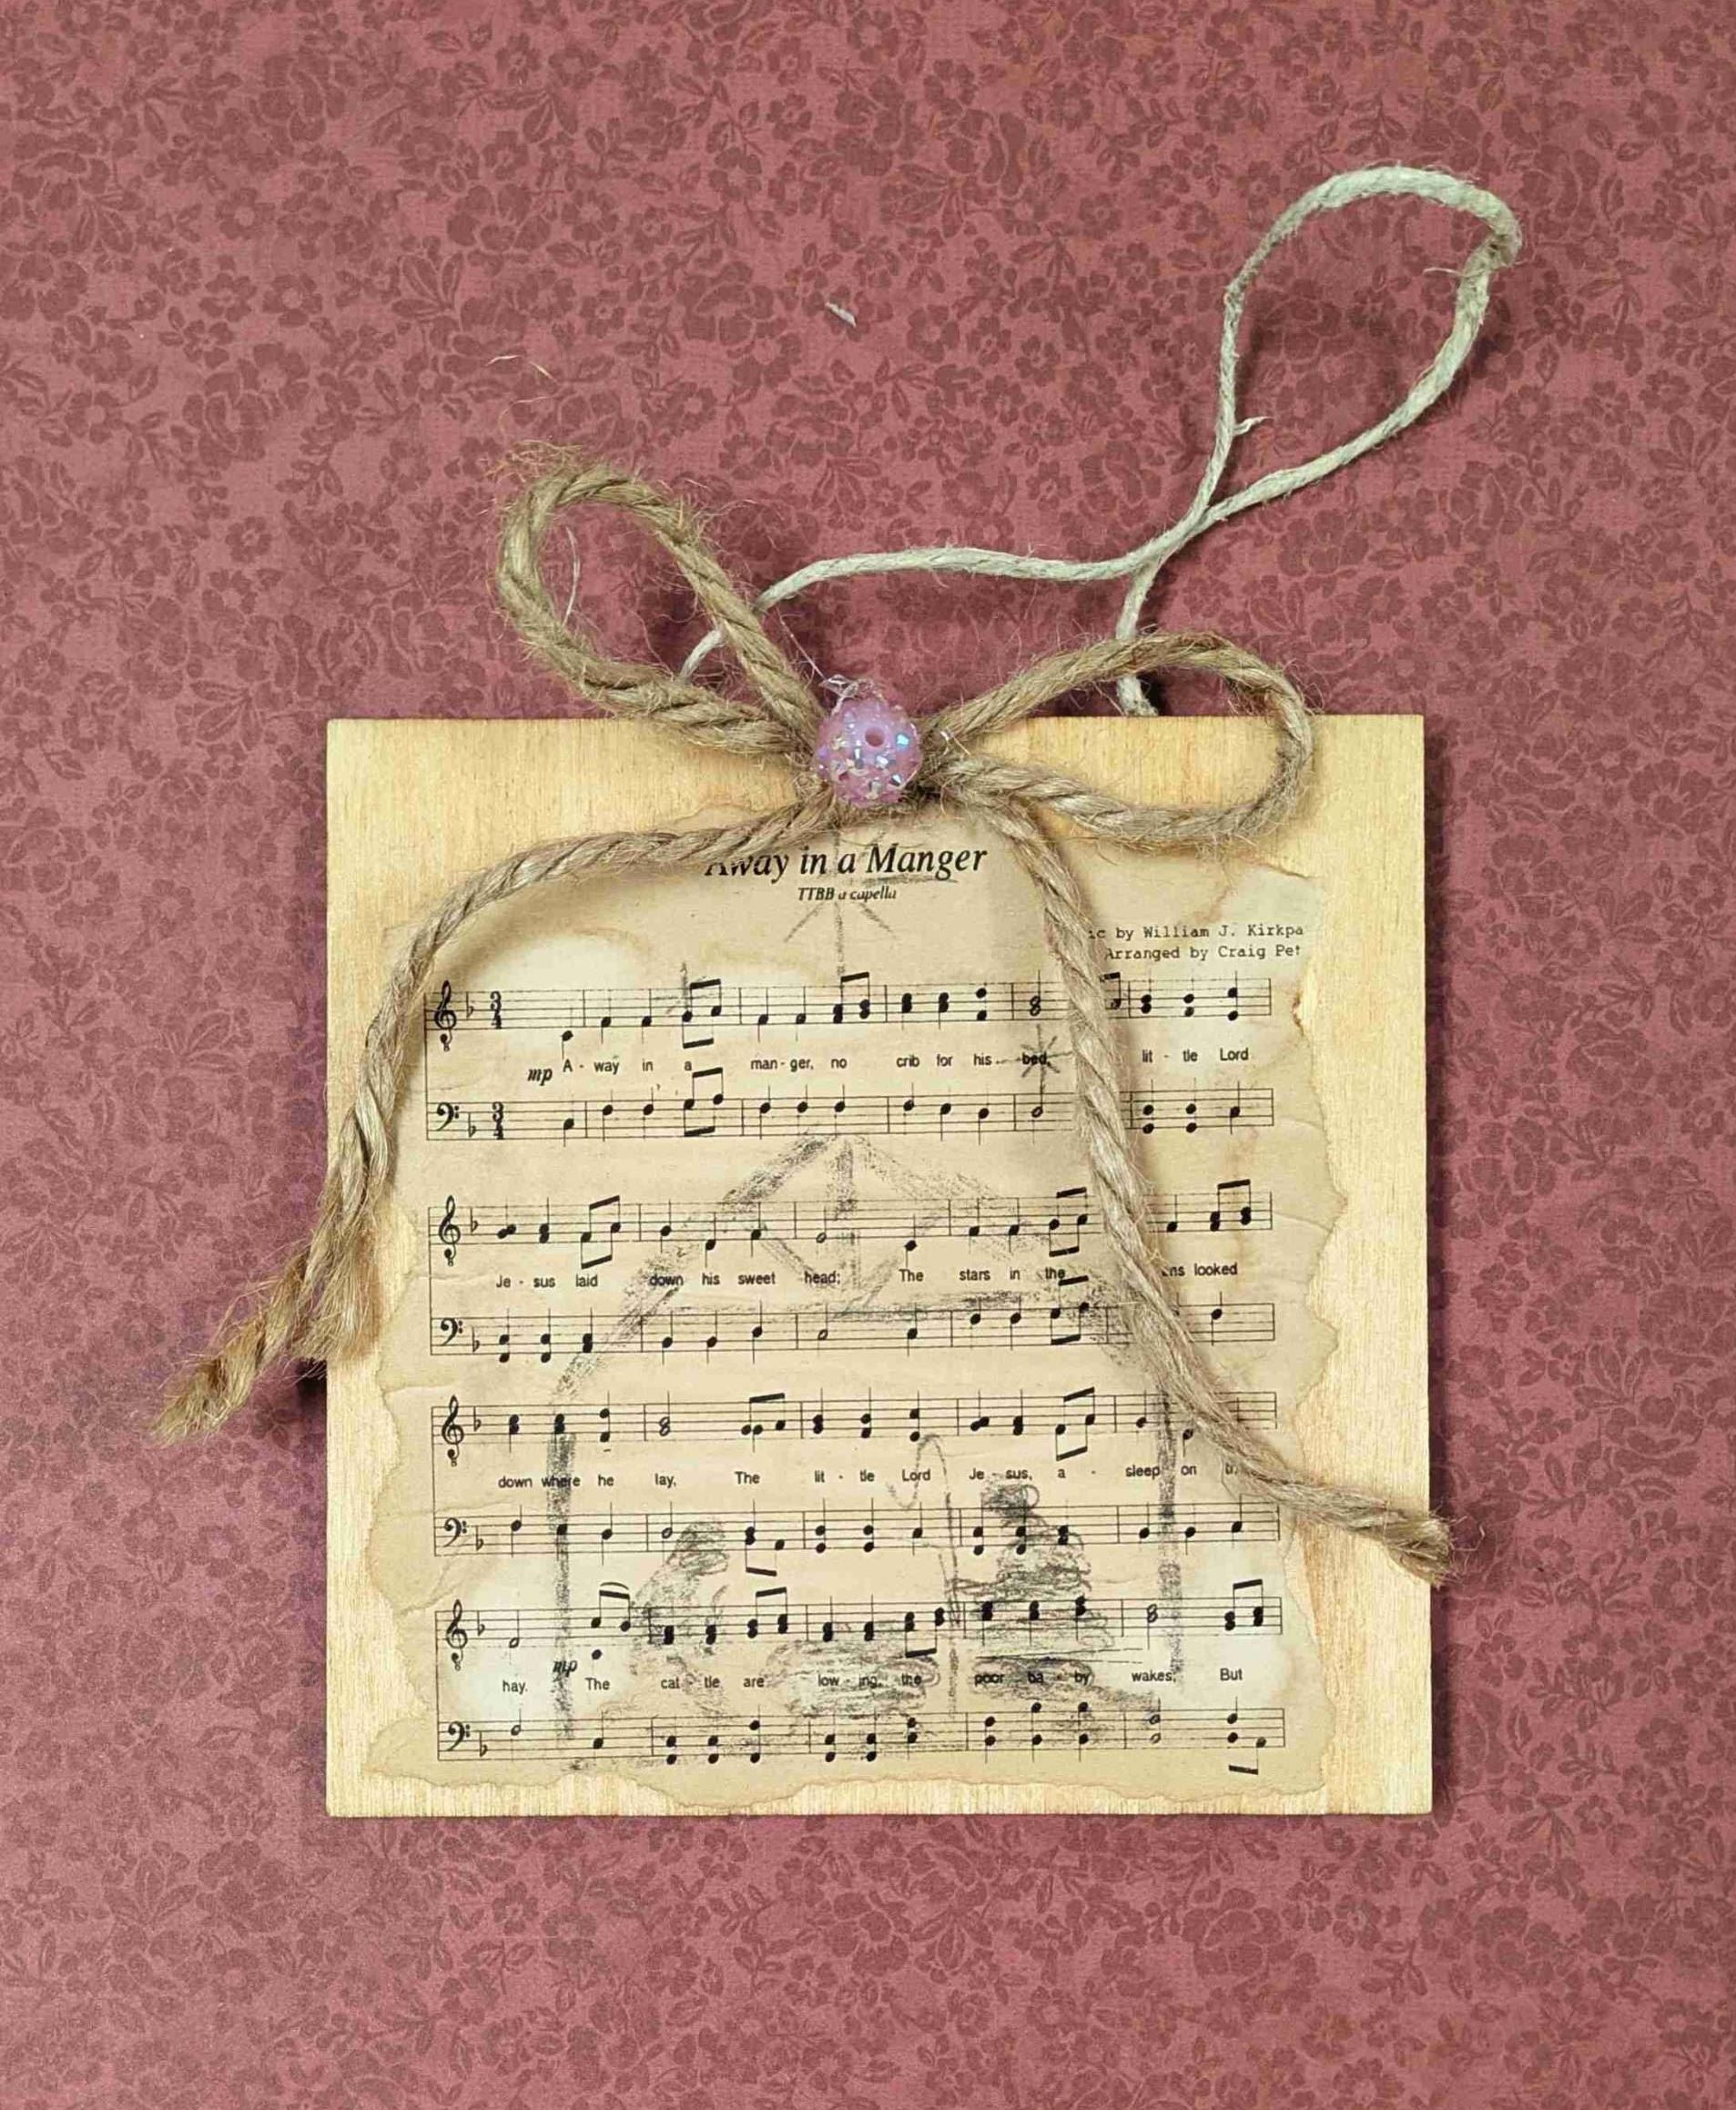 Away in a Manger
TTBB a capella
ic by William J. Kirkpa
Arranged by Craig Pet
mp A - way in a man - ger, no crib for his bed, lit - tle Lord
Je - sus laid down his sweet head; The stars in the ns looked
down where he lay, The lit - tle Lord Je - sus, a - sleep on
mp
hay. The cat - tle are low - ing, the poor ba - by wakes, But